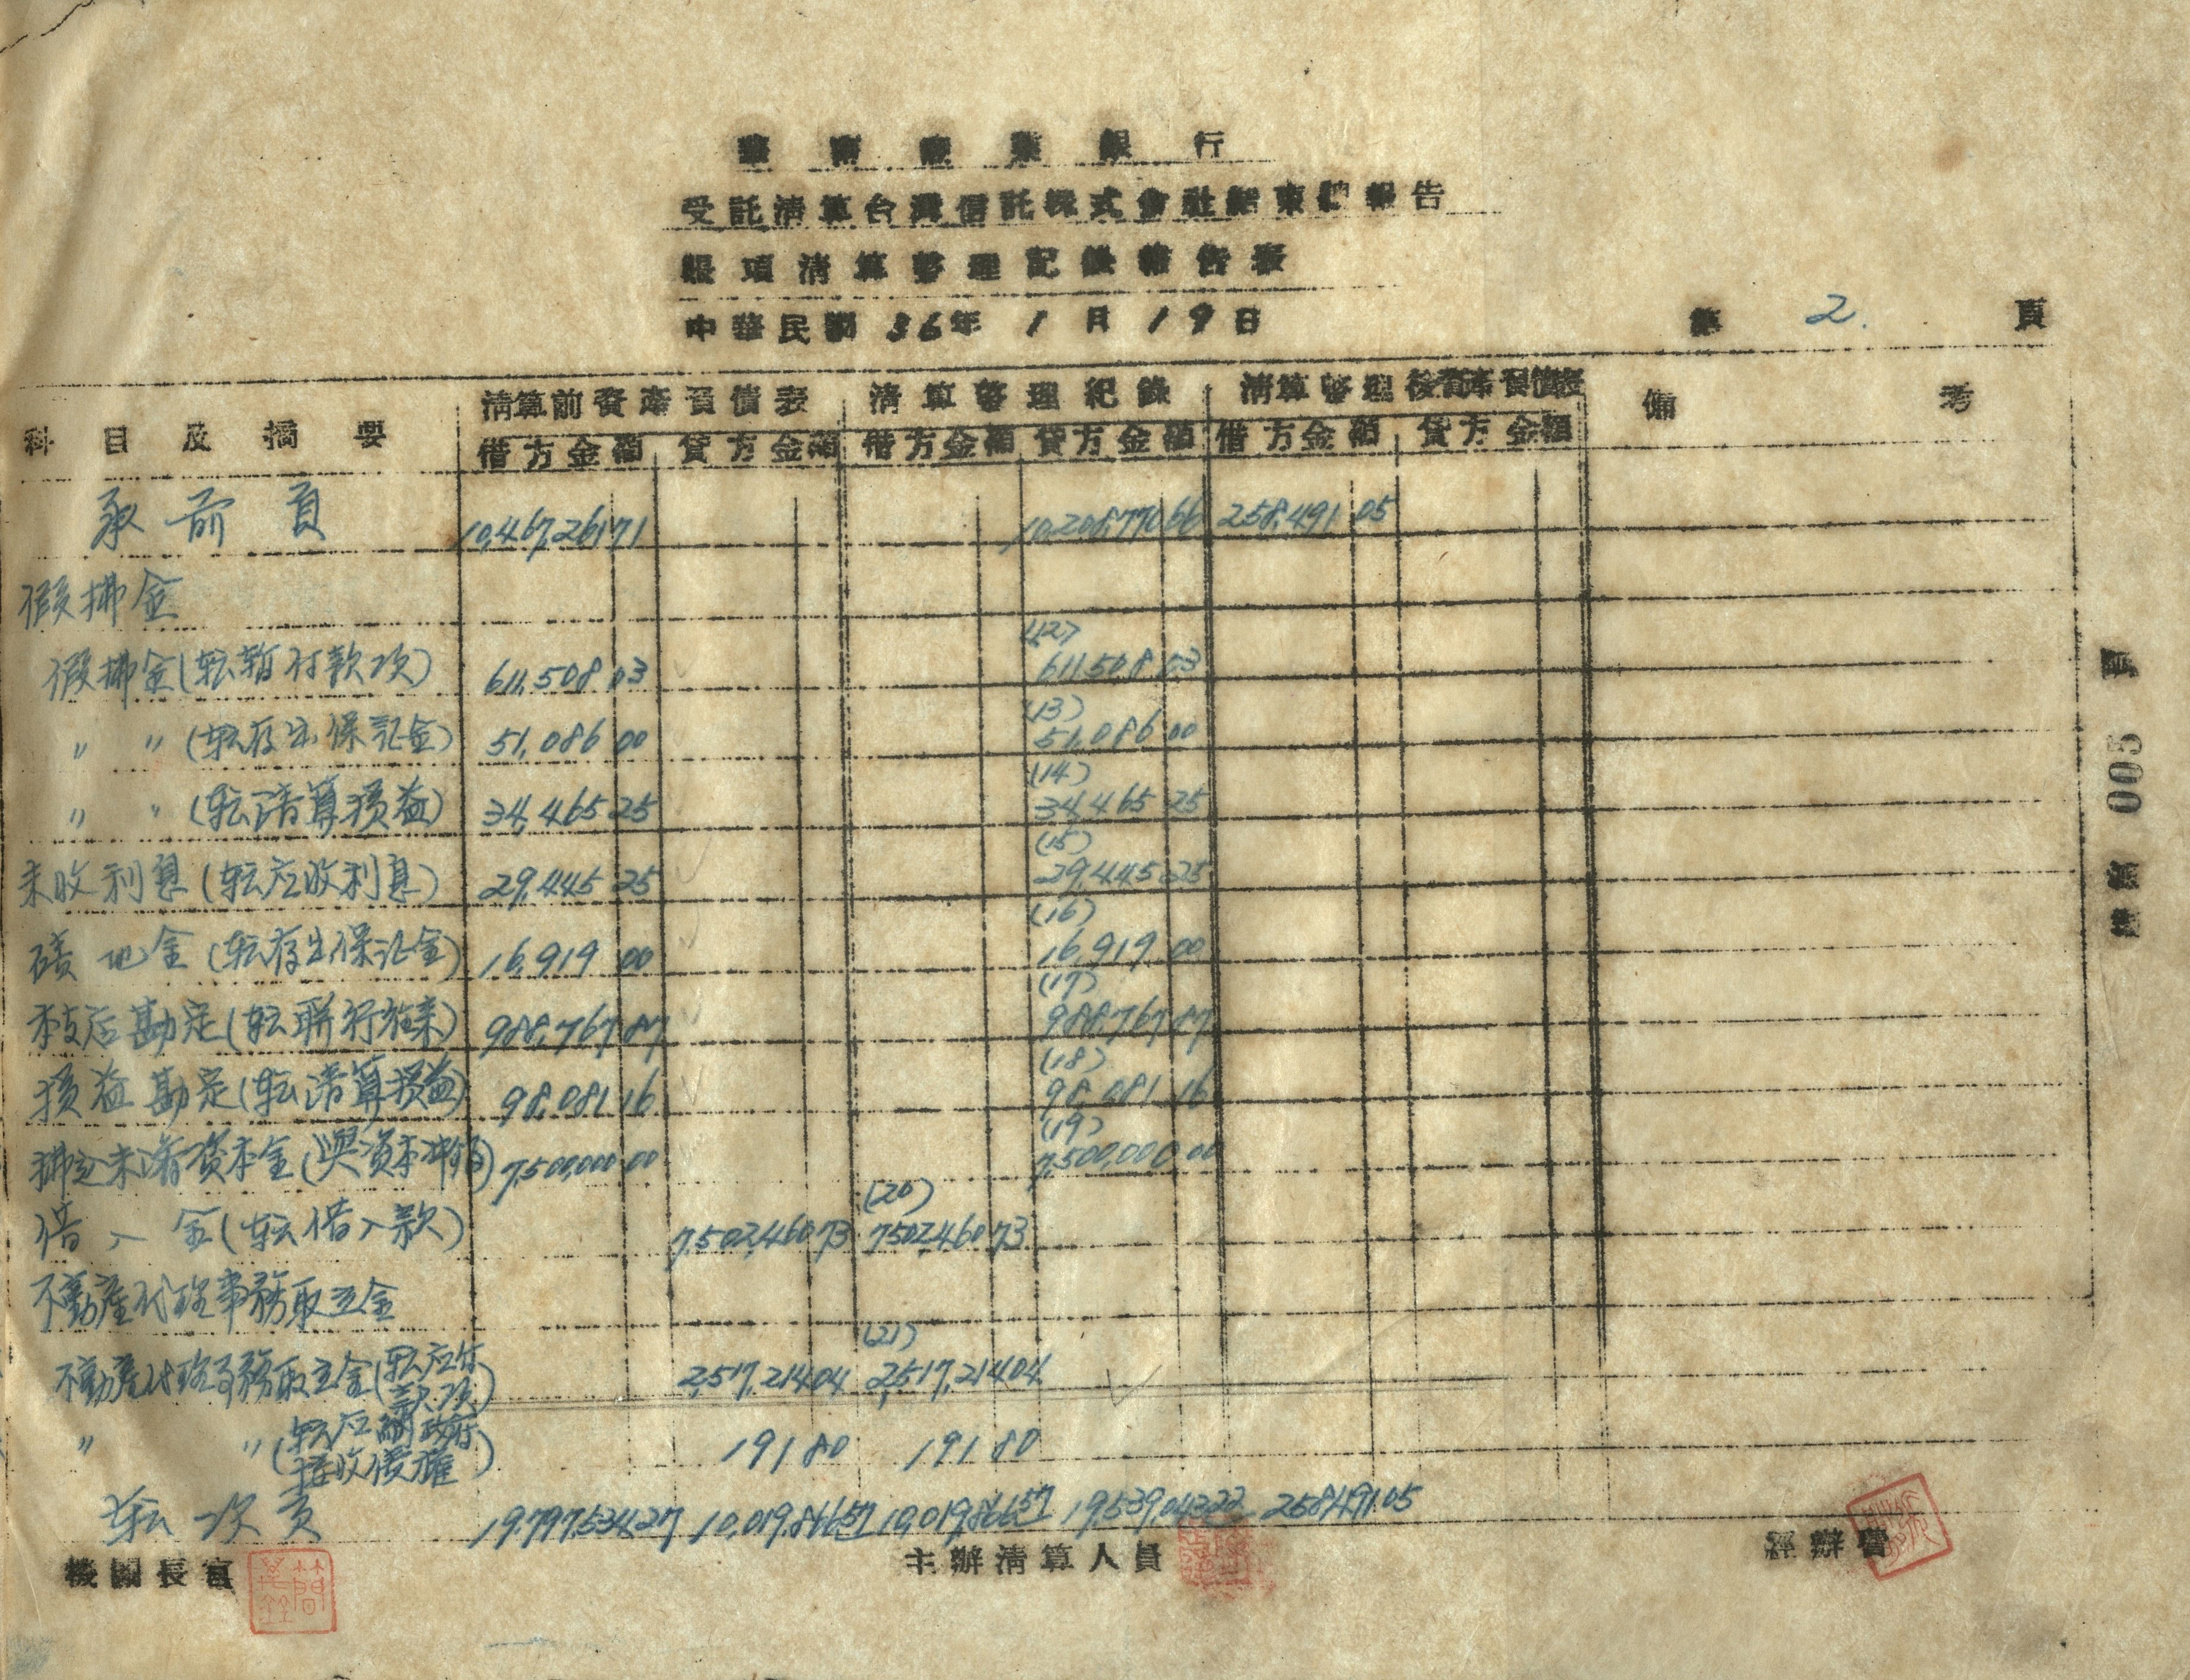 華南商業銀行
受託清算台灣信託株式會社結束總報告
賬項清算整理記錄報告表
中華民國 36年 1月 19日
第 2. 頁
科目及摘要 清算前資產負債表 清算整理紀錄 清算整理後資產負債表 備考
借方金額 貸方金額 借方金額 貸方金額 借方金額 貸方金額
承前頁 10,467,261 71 10,208,770 66 258,491 05
假拂金
(12)
假拂金(転暫付款項) 611,508 03 611,508 03
(13)
〃 〃 (転存出保証金) 51,086 00 51,086 00
(14)
〃 〃 (転清算損益) 34,465 25 34,465 25
(15)
未收利息(転应收利息) 29,445 25 29,445 25
(16)
磧地金(転存出保证金) 16,919 00 16,919 00
(17)
本支店勘定(転聯行往来) 988,767 87 988,767 87
(18)
損益勘定(転清算損益) 98,081 16 98,081 16
(19)
拂込未済資本金(與資本冲銷) 7,500,000 00 7,500,000 00
(20)
借入金(転借入款) 7,502,460 73 7,502,460 73
不動產代理事務取立金
(21)
不動產代理事務取立金(転应付款項) 2,517,214 04 2,517,214 04
〃 〃 (転应解政府接收債權) 191 80 191 80
転次頁 19,797,534 27 10,019,866 57 10,019,866 57 19,539,043 22 258,491 05
機關長官 主辦清算人員 經辦員
005 頁